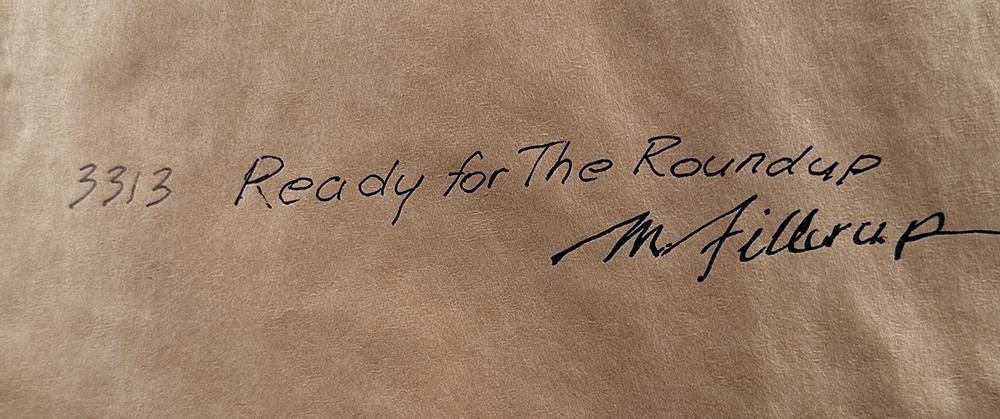 3313 Ready for The Roundup
M. Fillerup